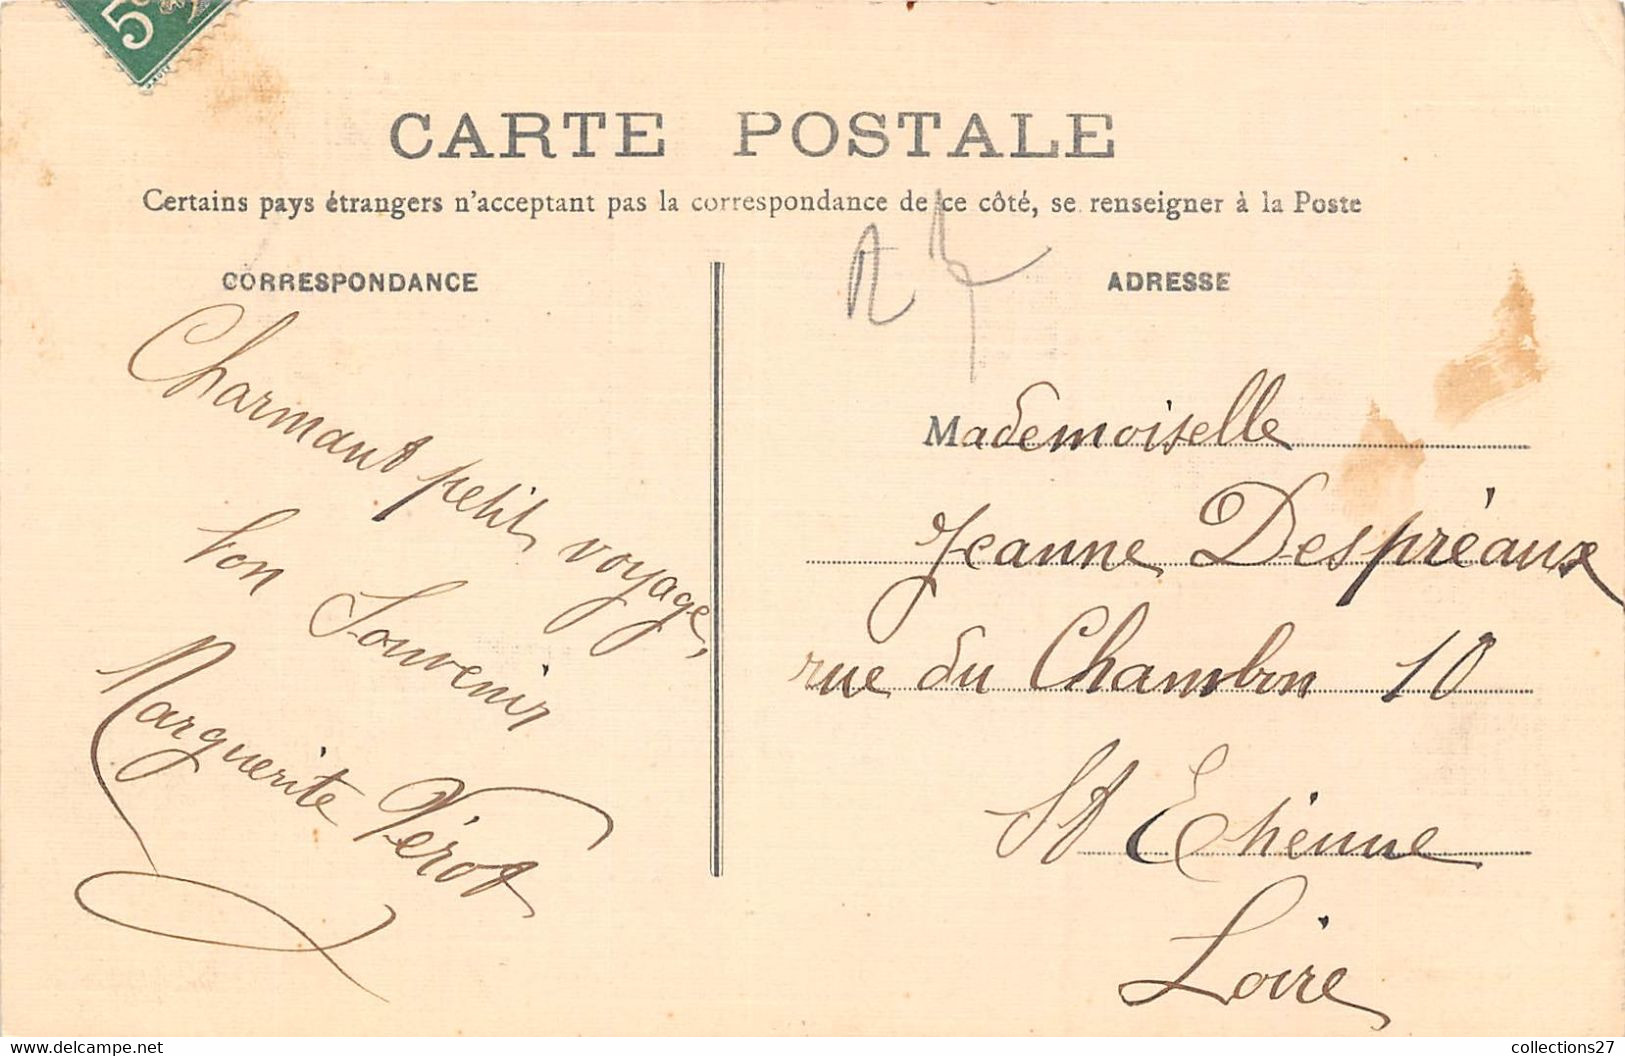 5
CARTE POSTALE
Certains pays étrangers n'acceptent pas la correspondance de ce côté, se renseigner à la Poste
CORRESPONDANCE
Charmant petit voyage,
bon Souvenir
Marguerite Vérot
ADRESSE
Mademoiselle
Jeanne Despréaux
rue du Chambon 10
St Etienne
Loire
www.delcampe.net
collections27